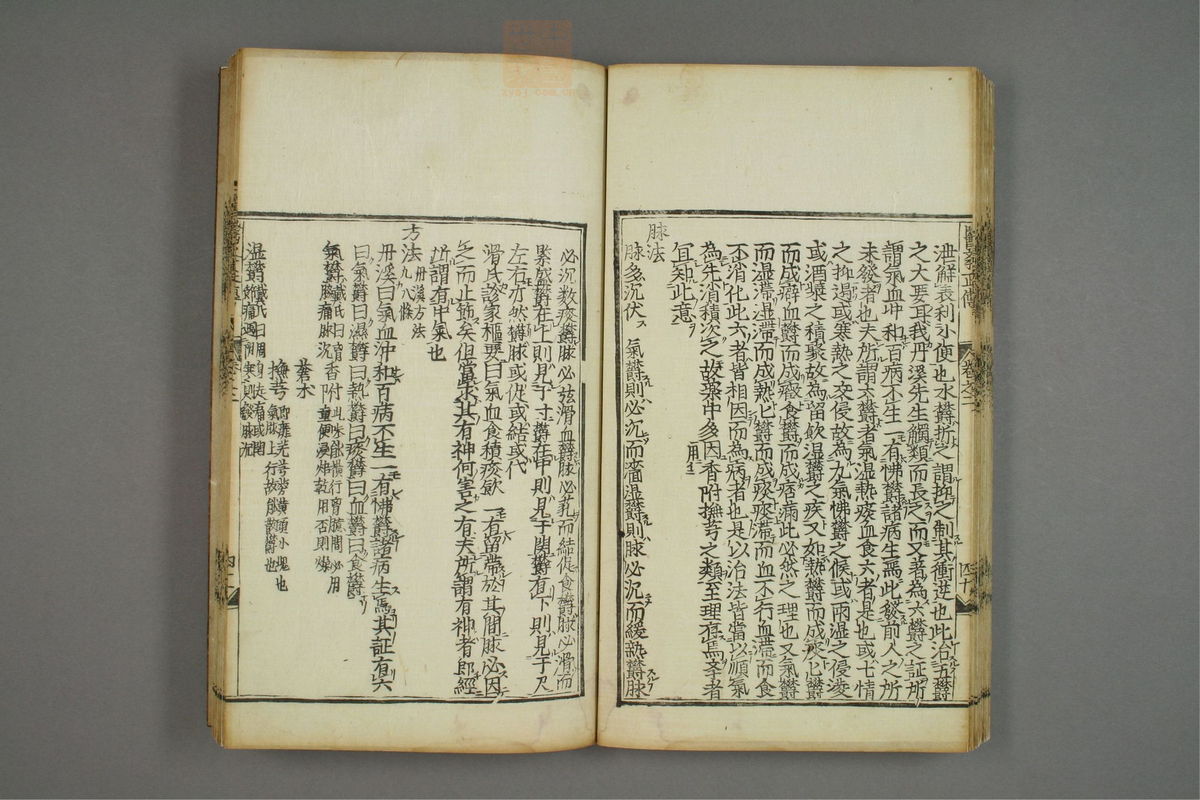 泄解表利小便也水欝折之謂抑之制其衝逆也此治五欝
之大要耳我丹溪先生觸類而長之而又著為六欝之証所
謂氣血冲和百病不生一有怫欝諸病生焉此發前人之所
未發者也夫所謂六欝者氣濕熱痰血食六者是也或七情
之抑遏或寒熱之交侵故為九氣怫欝之候或雨湿之侵凌
或酒漿之積聚故為留飲湿欝之疾又如熱欝而成痰痰欝
而成癖血欝而成癥食欝而成痞病此必然之理也又氣欝
而湿滯湿滯而成熱熱欝而成痰痰滯而血不行血滯而食
不消化此六者皆相因而為病者也是以治法皆當以順氣
為先消積次之故藥中多用香附撫芎之類至理存焉學者
宜知此意
脉法
脉多沉伏 氣欝則必沉而濇湿欝則脉必沉而緩熱欝脉
必沉数痰欝脉必弦滑血欝脉必芤而結促食欝脉必滑而
緊盛欝在上則見于寸欝在中則見于関欝在下則見于尺
左右亦然欝脉或促或結或代
滑氏診家樞要曰氣血食積痰飲一有留滯於其間脉必因
之而止節矣但當求其有神何害之有夫所謂有神者即經
所謂有中氣也
方法 丹溪方法凡八條
丹溪曰氣血沖和百病不生一有怫欝諸病生焉其証有六
曰氣欝曰濕欝曰熱欝曰痰欝曰血欝曰食欝